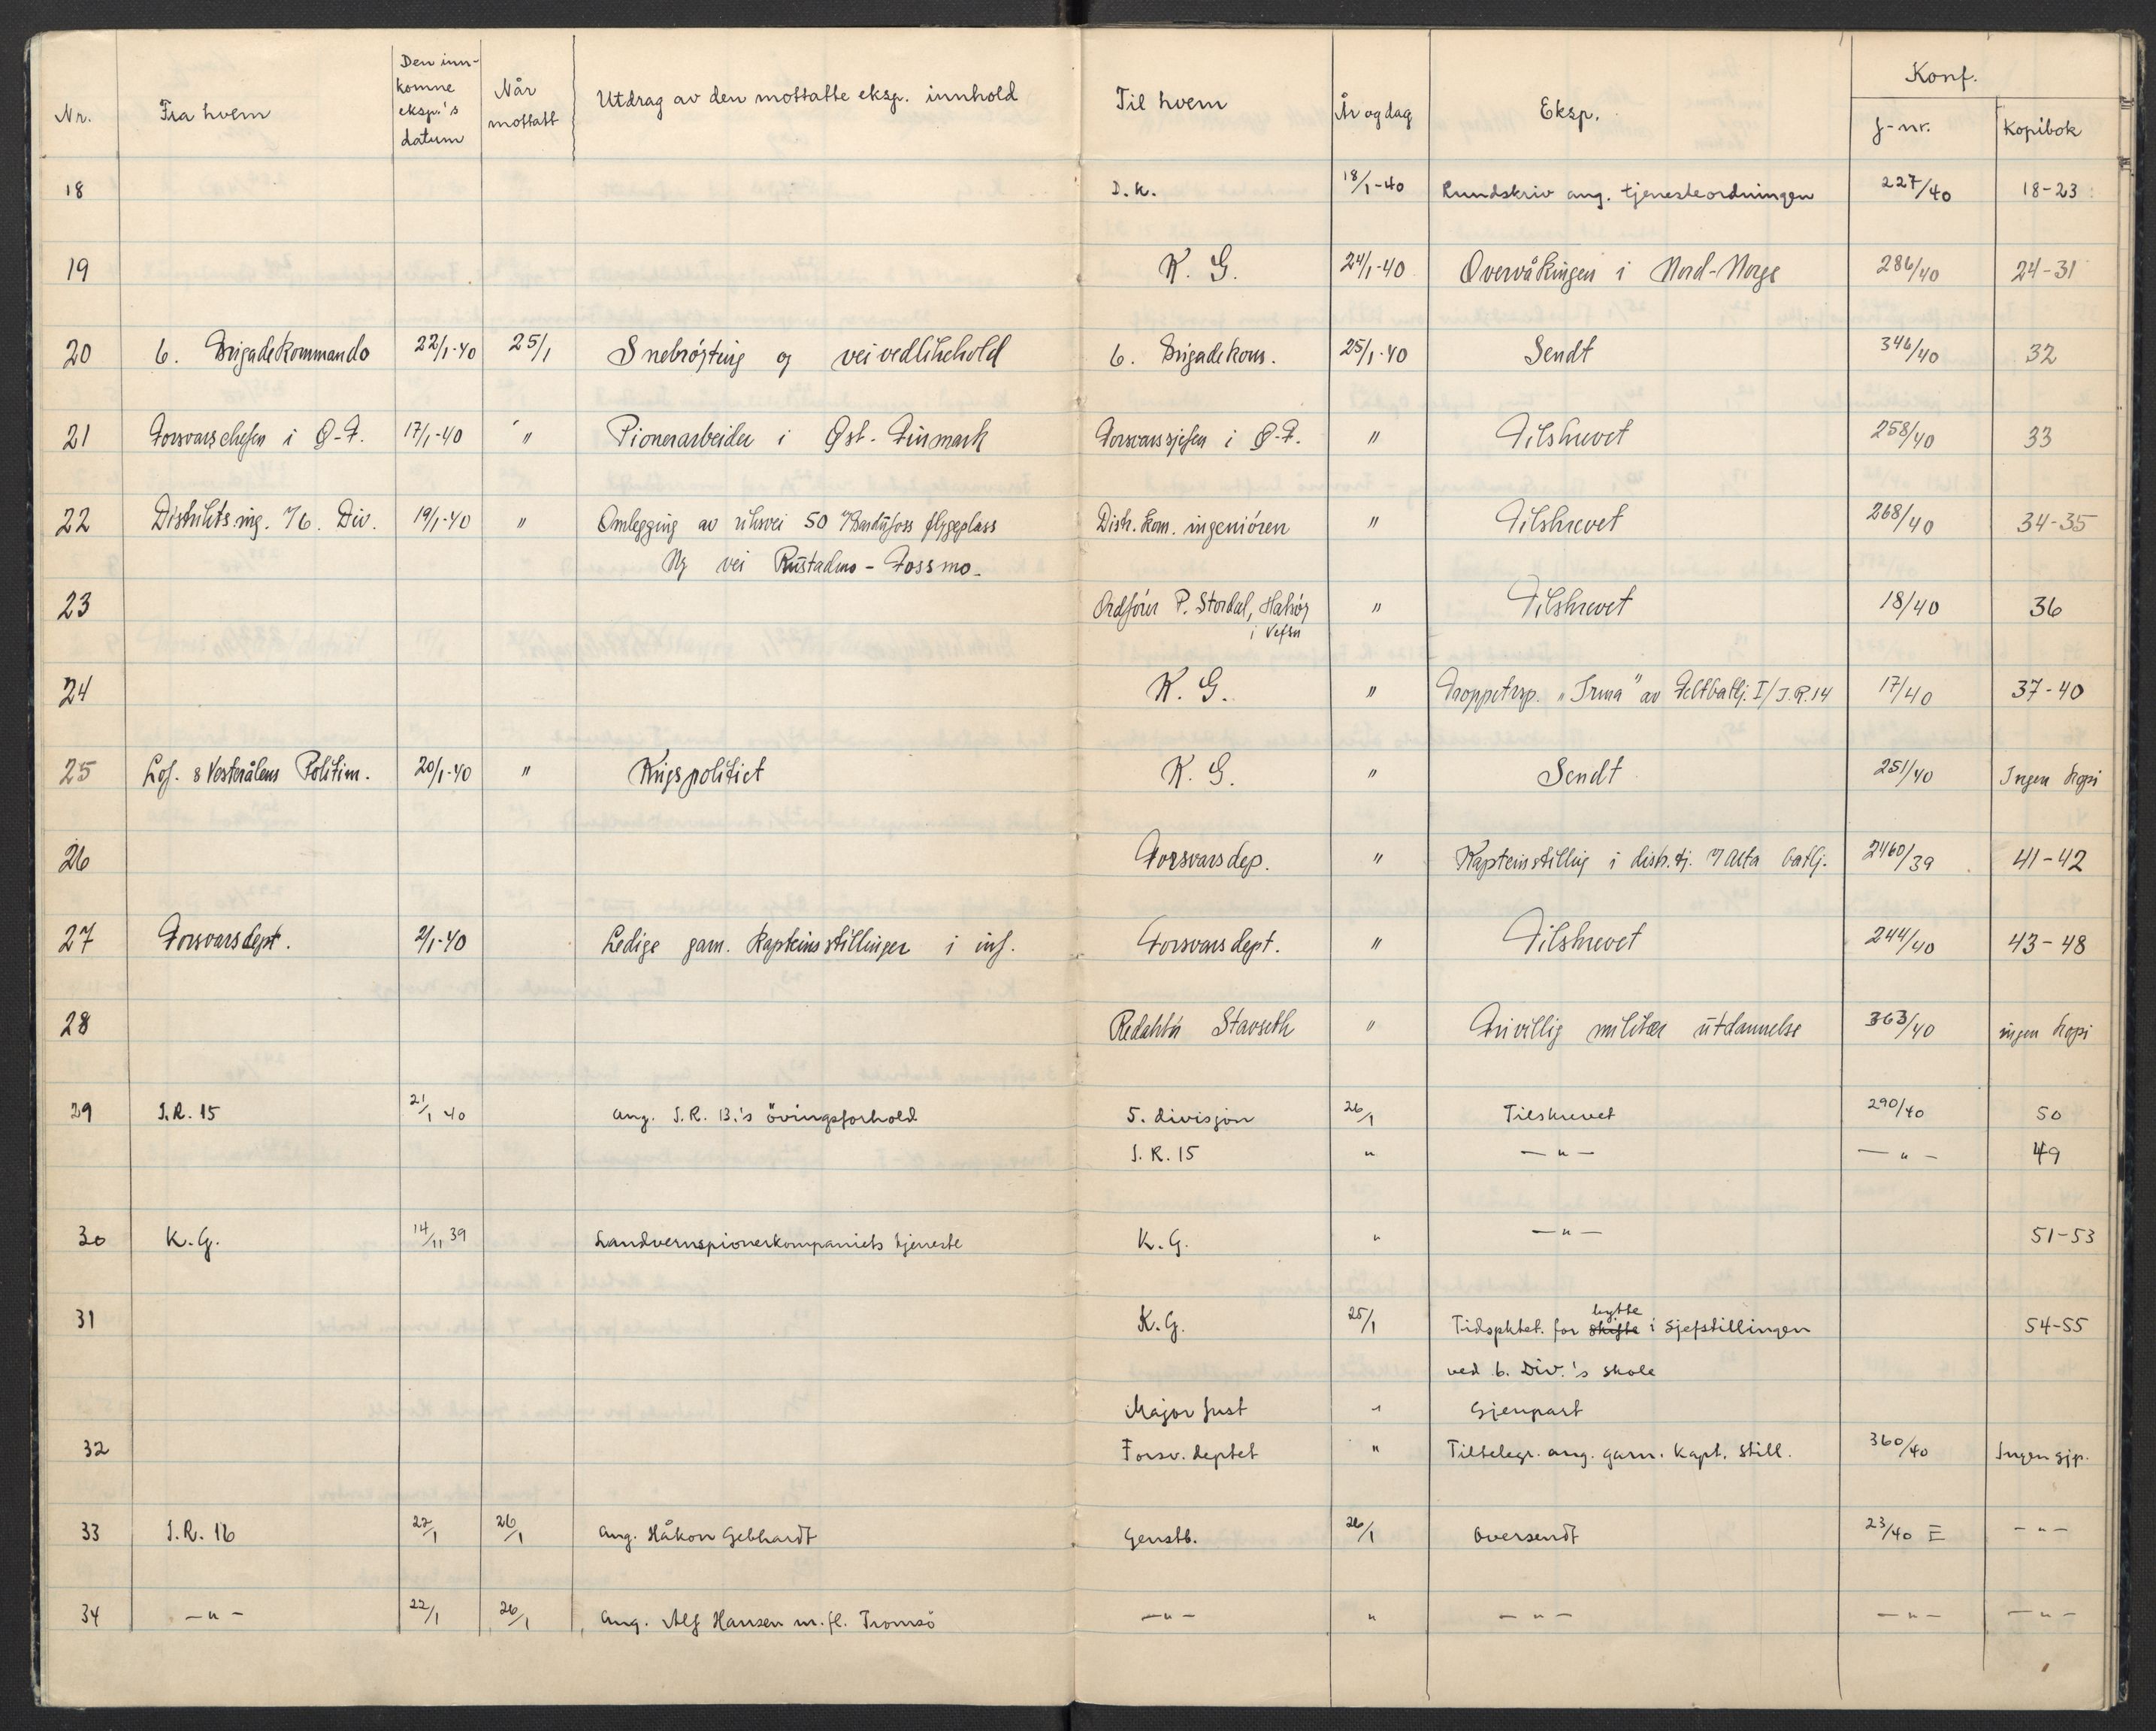 Nr. Fra hvem Den inn- komne eksp.'s datum Når mottatt Utdrag av den mottatte eksp. innhold Til hvem År og dag Eksp. Konf. J-nr. Kopibok
18 D.K. 18/1-40 Rundskriv ang. tjenesteordningen 227/40 18-23
19 K. G. 24/1-40 Overvåkingen i Nord-Norge 286/40 24-31
20 6. Brigadekommando 22/1-40 25/1 Snebrøyting og veivedlikehold 6. Brigadekom. 25/1-40 Sendt 346/40 32
21 Forsvarschefen i Ø-F. 17/1-40 " Pionerarbeider i Øst-Finmark Forsvarssjefen i Ø-F. " Tilskrevet 258/40 33
22 Distriktsing. 7/6. Div. 19/1-40 " Omlegging av riksvei 50 Bardufoss flygeplass Distr. kom. ingeniören " Tilskrevet 268/40 34-35
Ny vei Rustadmo - Fossmo.
23 Ordförer P. Stordal, Halsøy " Tilskrevet 18/40 36
i Vefsn
24 K. G. " Troppetrsp. "Irma" av Feltbatlj. I/I.R.14 17/40 37-40
25 Lof. & Vesterålens Politim. 20/1-40 " Krigspolitiet K. G. " Sendt 251/40 Ingen kopi
26 Forsvarsdep. " Kapteinstilling i distr.tj. 7 Alta batlj. 2460/39 41-42
27 Forsvarsdept. 2/1-40 Ledige garn. kapteinsstillinger i inf. Forsvarsdept. " Tilskrevet 244/40 43-48
28 Redaktör Stavseth " Frivillig militær utdannelse 363/40 ingen kopi
29 I.R. 15 21/1 40 ang. I.R. 13.'s övingsforhold 5. divisjon 26/1 Tilskrevet 290/40 50
I.R. 15 " - " - - " - 49
30 K.G. 14/11 39 Landvernspionerkompaniets tjeneste K.G. " - " - 51-53
31 K.G. 25/1 Tidspktet. for skifte bytte i sjefstillingen 54-55
ved 6. Div.'s skole
Major Just " Gjenpart
32 Forsv.deptet " Tiltelegr. ang. garn. kapt. still. 360/40 Ingen gjp.
33 I.R. 16 22/1 26/1 ang. Håkon Gebhardt Genstb. 26/1 Oversendt 23/40 II - " -
34 - " - 22/1 26/1 ang. Alf Hansen m.fl. Tromsö - " - " - " - - " - - " -